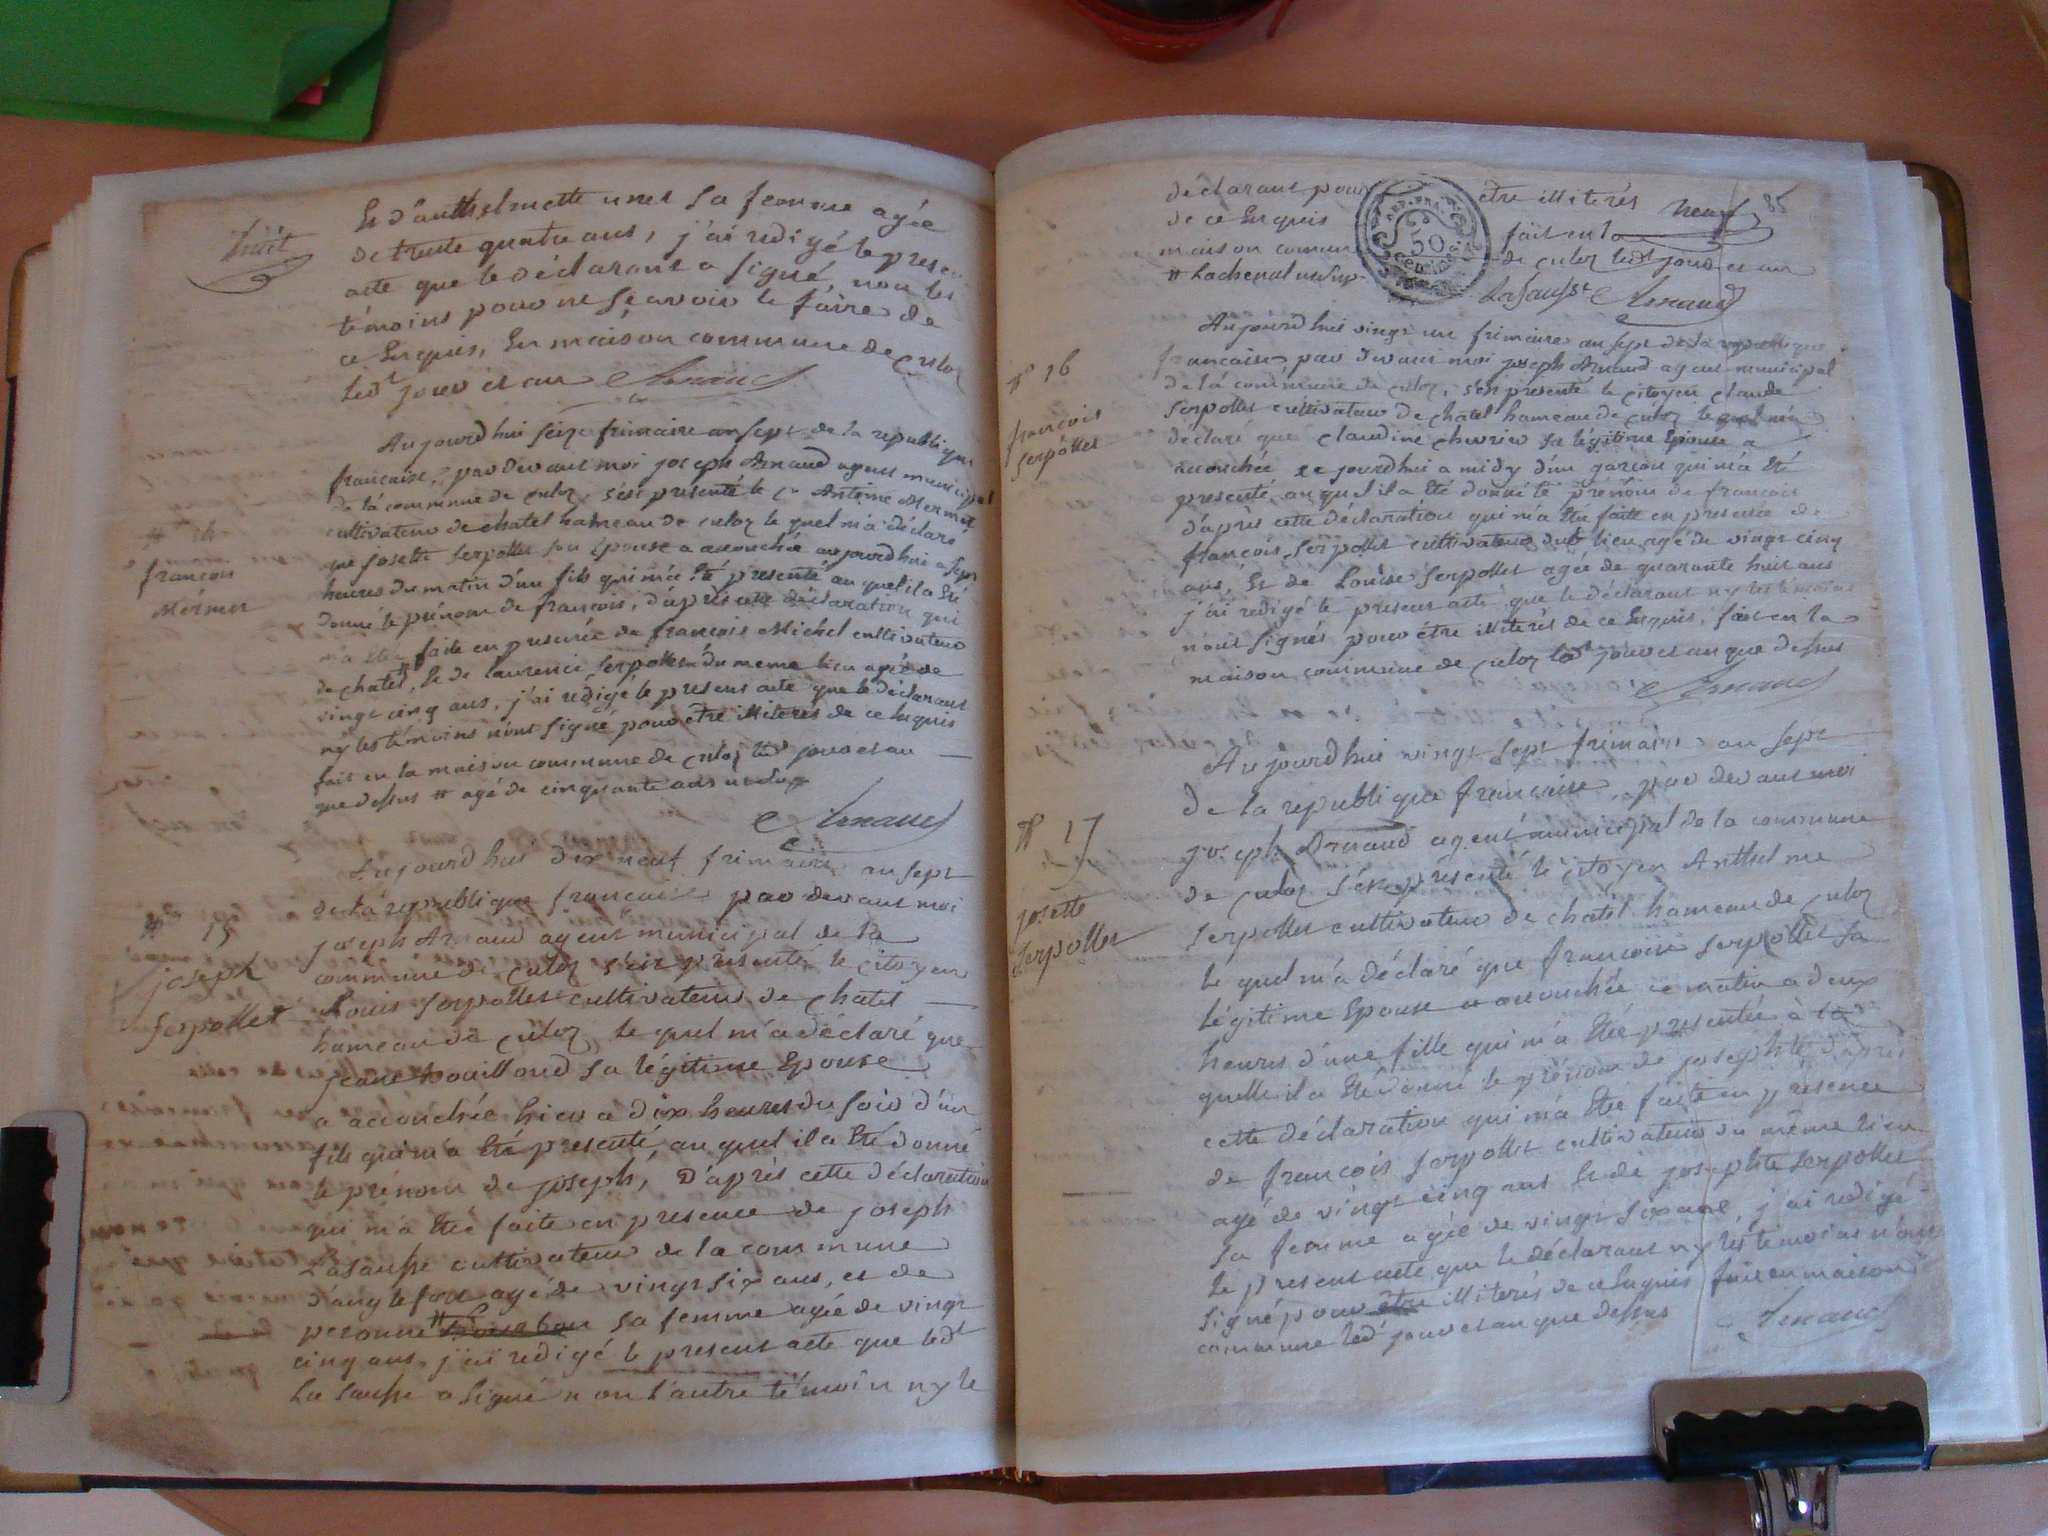 huit
Et d'anthelmette unet sa femme agée
de trente quatre ans, j'ai redigé le presen
acte que le déclarant a signé, non les
témoins pour ne sçavoir le faire de
ce Enquis, En maison commune de Culoz
led.t jour et an Arnaud
Aujourd'hui seize frimaire an sept de la republique
française, par devant moi joseph Arnaud agent municipal
de la commune de Culoz, s'est presenté le c.n Antoine Mermet
cultivateur de chatel hameau de Culoz le quel m'a déclaré
que josette serpollet son Epouse a accouchée aujourd'hui a sept
heures du matin d'un fils qui m'a Eté presenté au quel il a Eté
donné le prénom de francois, d'après cette déclaration qui
m'a Etée faite en presence de francois Michel cultivateur
de chatel #, Et de laurence serpollet du meme lieu agée de
vingt cinq ans, j'ai redigé le present acte que le déclarant
ny les témoins n'ont signé pour être illiterés de ce Enquis
fait en la maison commune de Culoz led.t jour et an
que dessus # agé de cinquante ans
Arnaud
# 14
francois
Mermet
Aujourd'hui dix neuf frimaire an sept
de la republique francaise par devant moi
joseph Arnaud agent municipal de la
commune de Culoz s'est présenté le citoyen
Louis serpollet cultivateur de chatel
hameau de Culoz, le quel m'a déclaré que
jeane bouillond sa légitime Epouse
a accouchée hier a dix heures du soir d'un
fils qui m'a Eté presenté, au quel il a Eté donné
le prénom de joseph, D'après cette déclaration
qui m'a Etée faite en presence de joseph
Lasausse cultivateur de la commune
d'anglefort agé de vingt six ans, et de
peronne # sa femme agée de vingt
cinq ans, j'ai redigé le present acte que led.t
La sausse a signé non l'autre témoin ny le
# 15
joseph
serpollet
déclarant pour être illiterés neuf 85
de ce Enquis fait en la
maison comune de Culoz led.t jour et an
# Lachenal
REP. FRA.
50
CENTIMES
Lasausse Arnaud
Aujourd'hui vingt un frimaire an sept de la republique
francaise par devant moi joseph Arnaud agent municipal
de la commune de Culoz, s'est presenté le citoyen claude
serpollet cultivateur de chatel hameau de Culoz le quel m'a
déclaré que claudine chevrier sa légitime Epouse a
accouchée ce jourd'hui a midy d'un garcon qui m'a Eté
presenté, au quel il a Eté donné le prénom de francois
d'après cette déclaration qui m'a Etée faite en presence de
francois serpollet cultivateur dud lieu agé de vingt cinq
ans, Et de Louise serpollet agée de quarante huit ans
j'ai redigé le present acte que le déclarant ny les témoins
n'ont signés pour être illiterés de ce Enquis, fait en la
maison commune de Culoz led.t jour et an que dessus
Arnaud
# 16
francois
serpollet
Aujourd'hui vingt sept frimaire an sept
de la republique francaise, par devant moi
joseph Arnaud agent municipal de la commune
de Culoz s'est présenté le citoyen Anthelme
serpollet cultivateur de chatel hameau de Culoz
le quel m'a déclaré que francoise serpollet sa
légitime Epouse a accouchée ce matin a deux
heures d'une fille qui m'a Etée presentée à la
quelle il a Eté donné le prénom de josephte, d'après
cette déclaration qui m'a Etée faite en présence
de francois serpollet cultivateur du même lieu
agé de vingt cinq ans Et de josephte serpollet
sa femme agée de vingt six ans, j'ai redigé
le present acte que le déclarant ny les témoins n'ont
signé pour être illiterés de ce Enquis fait en maison
commune led.t jour et an que dessus
Arnaud
# 17
josette
serpollet